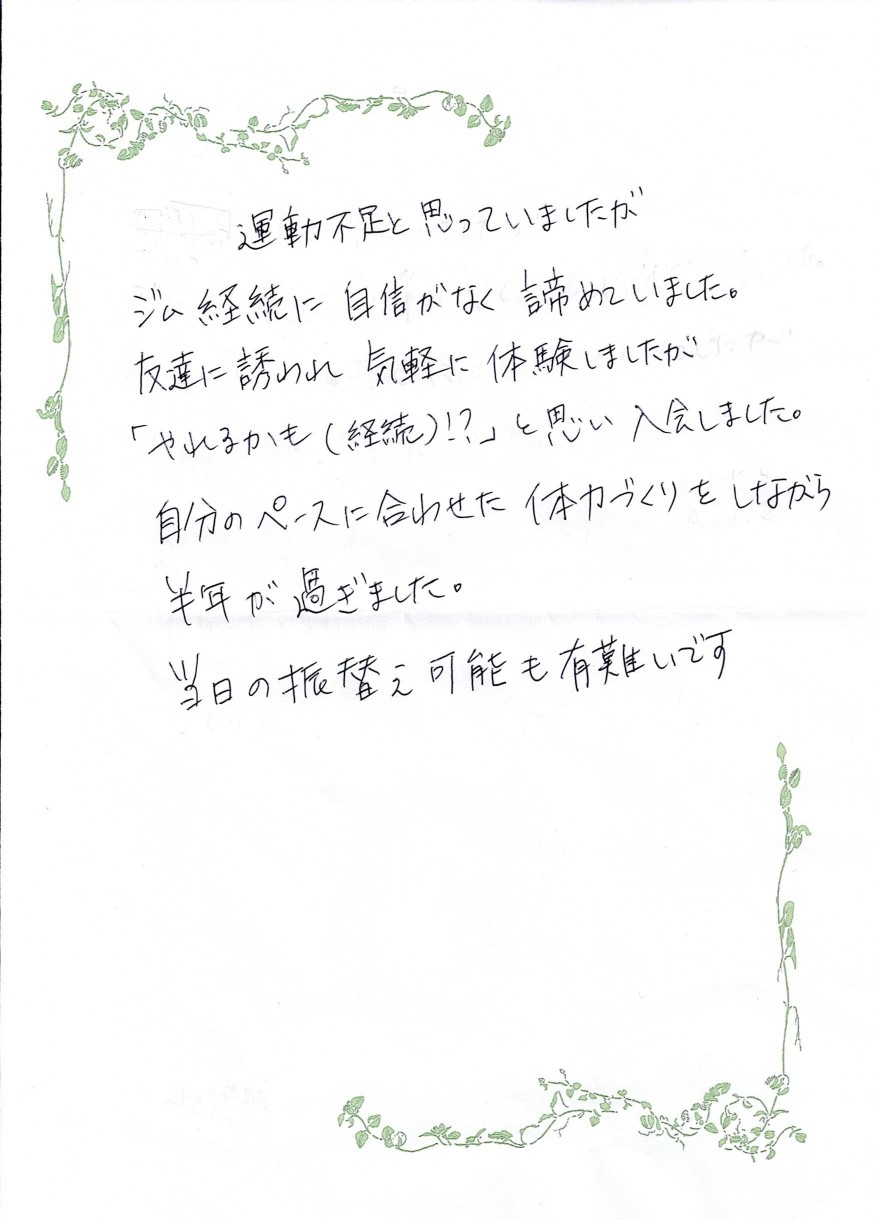 運動不足と思っていましたが
ジム経続に自信がなく諦めていました。
友達に誘われ気軽に体験しましたが
「やれるかも(経続)!?」と思い入会しました。
自分のペースに合わせた体力づくりをしながら
半年が過ぎました。
当日の振替え可能も有難いです